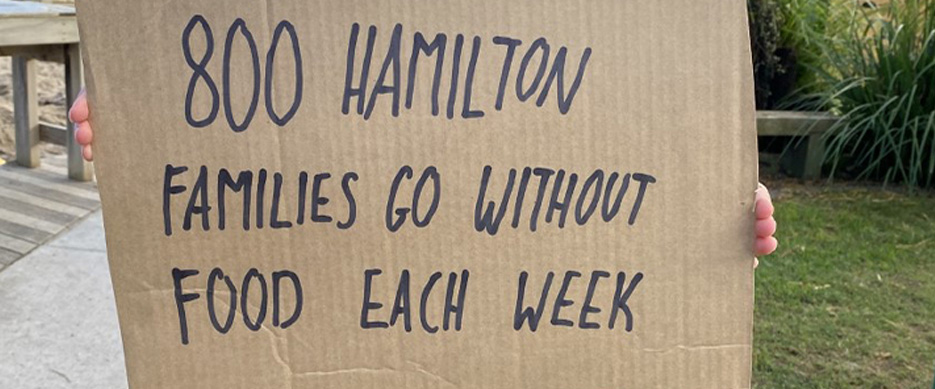 800 HAMILTON
FAMILIES GO WITHOUT
FOOD EACH WEEK